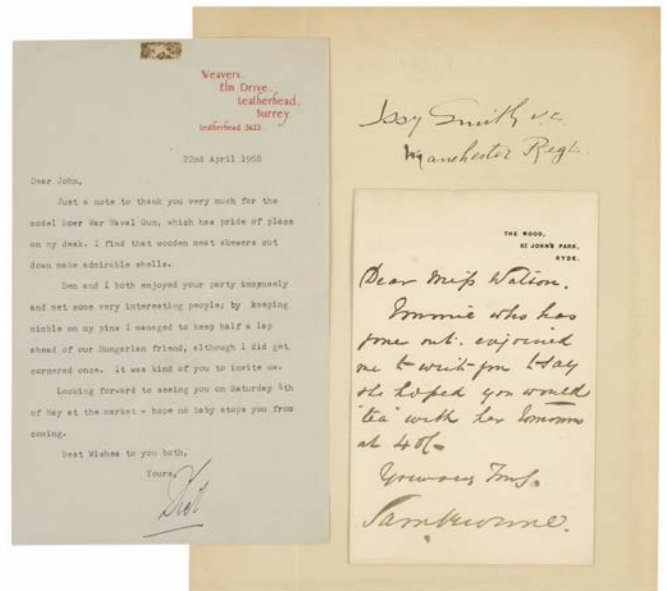 Weavers.
Elm Drive.
Leatherhead.
Surrey
Leatherhead 3623
22nd April 1968
Dear John,
Just a note to thank you very much for the
model Boer War Naval Gun, which has pride of place
on my desk. I find that wooden meat skewers cut
down make admirable shells.
Den and I both enjoyed your party immensely
and met some very interesting people; by keeping
nimble on my pins I managed to keep half a lap
ahead of our Hungarian friend, although I did get
cornered once. It was kind of you to invite us.
Looking forward to seeing you on Saturday 4th
of May at the market - hope no baby stops you from
coming.
Best Wishes to you both,
Yours,
Issy Smith v.c.
Manchester Regt.
THE WOOD,
ST JOHN'S PARK,
RYDE.
Dear Miss Watson.
Emmie who has
gone out. enjoined
me to write you to say
she hoped you would
"tea" with her tomorrow
at